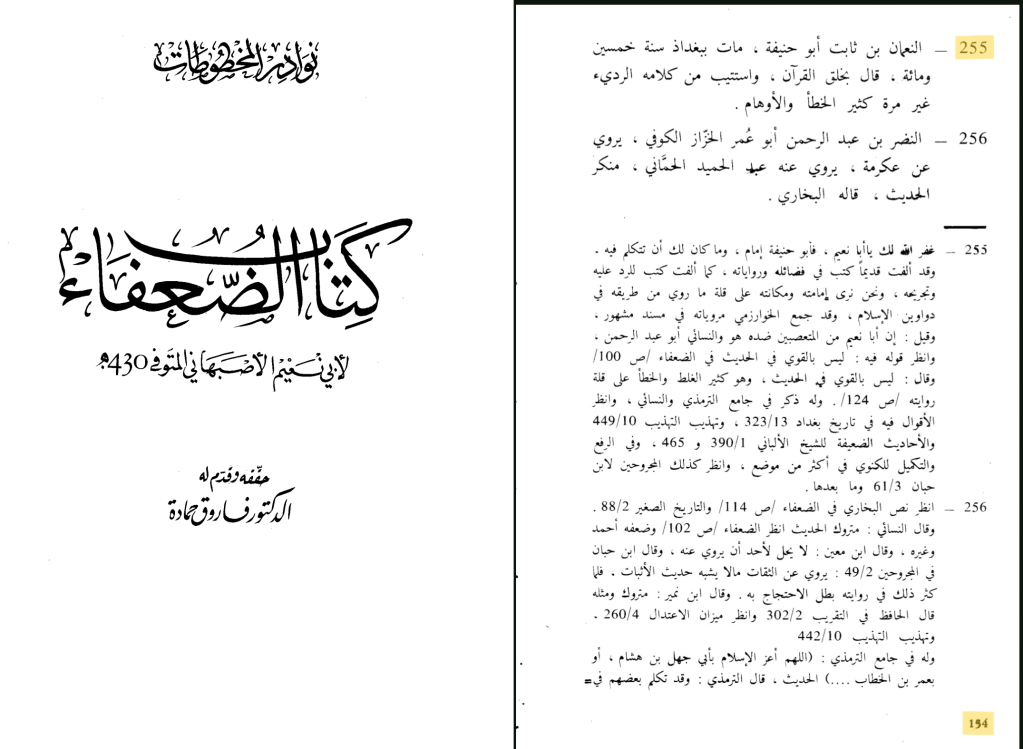 نوادر المخطوطات
كتاب الضعفاء
لأبي نعيم الأصبهاني المتوفى 430هـ
حققه وقدم له
الدكتور فاروق حمادة
255 — النعمان بن ثابت أبو حنيفة ، مات ببغداذ سنة خمسين
ومائة ، قال بخلق القرآن ، واستتيب من كلامه الرديء
غير مرة كثير الخطأ والأوهام .
256 — النضر بن عبد الرحمن أبو عُمر الخزّاز الكوفي ، يروي
عن عكرمة ، يروي عنه عبد الحميد الحمَّاني ، منكر
الحديث ، قاله البخاري .
255 — غفر الله لك ياأبا نعيم ، فأبو حنيفة إمام ، وما كان لك أن تتكلم فيه .
وقد ألفت قديماً كتب في فضائله ورواياته ، كما ألفت كتب للرد عليه
وتجريحه ، ونحن نرى إمامته ومكانته على قلة ما روي من طريقه في
دواوين الإسلام ، وقد جمع الخوارزمي مروياته في مسند مشهور ،
وقيل : إن أبا نعيم من المتعصبين ضده هو والنسائي أبو عبد الرحمن ،
وانظر قوله فيه : ليس بالقوي في الحديث في الضعفاء /ص 100/
وقال : ليس بالقوي في الحديث ، وهو كثير الغلط والخطأ على قلة
روايته /ص 124/. وله ذكر في جامع الترمذي والنسائي ، وانظر
الأقوال فيه في تاريخ بغداد 323/13 ، وتهذيب التهذيب 449/10
والأحاديث الضعيفة للشيخ الألباني 390/1 و 465 ، وفي الرفع
والتكميل للكنوي في أكثر من موضع ، وانظر كذلك المجروحين لابن
حبان 61/3 وما بعدها .
256 — انظر نص البخاري في الضعفاء /ص 114/ والتاريخ الصغير 88/2 .
وقال النسائي : متروك الحديث انظر الضعفاء /ص 102/ وضعفه أحمد
وغيره ، وقال ابن معين : لا يحل لأحد أن يروي عنه ، وقال ابن حبان
في المجروحين 49/2 : يروي عن الثقات مالا يشبه حديث الأثبات . فلما
كثر ذلك في روايته بطل الاحتجاج به . وقال ابن نمير : متروك ومثله
قال الحافظ في التقريب 302/2 وانظر ميزان الاعتدال 260/4 .
وتهذيب التهذيب 442/10
وله في جامع الترمذي : (اللهم أعز الإسلام بأبي جهل بن هشام ، أو
بعمر بن الخطاب ....) الحديث ، قال الترمذي : وقد تكلم بعضهم في=
154